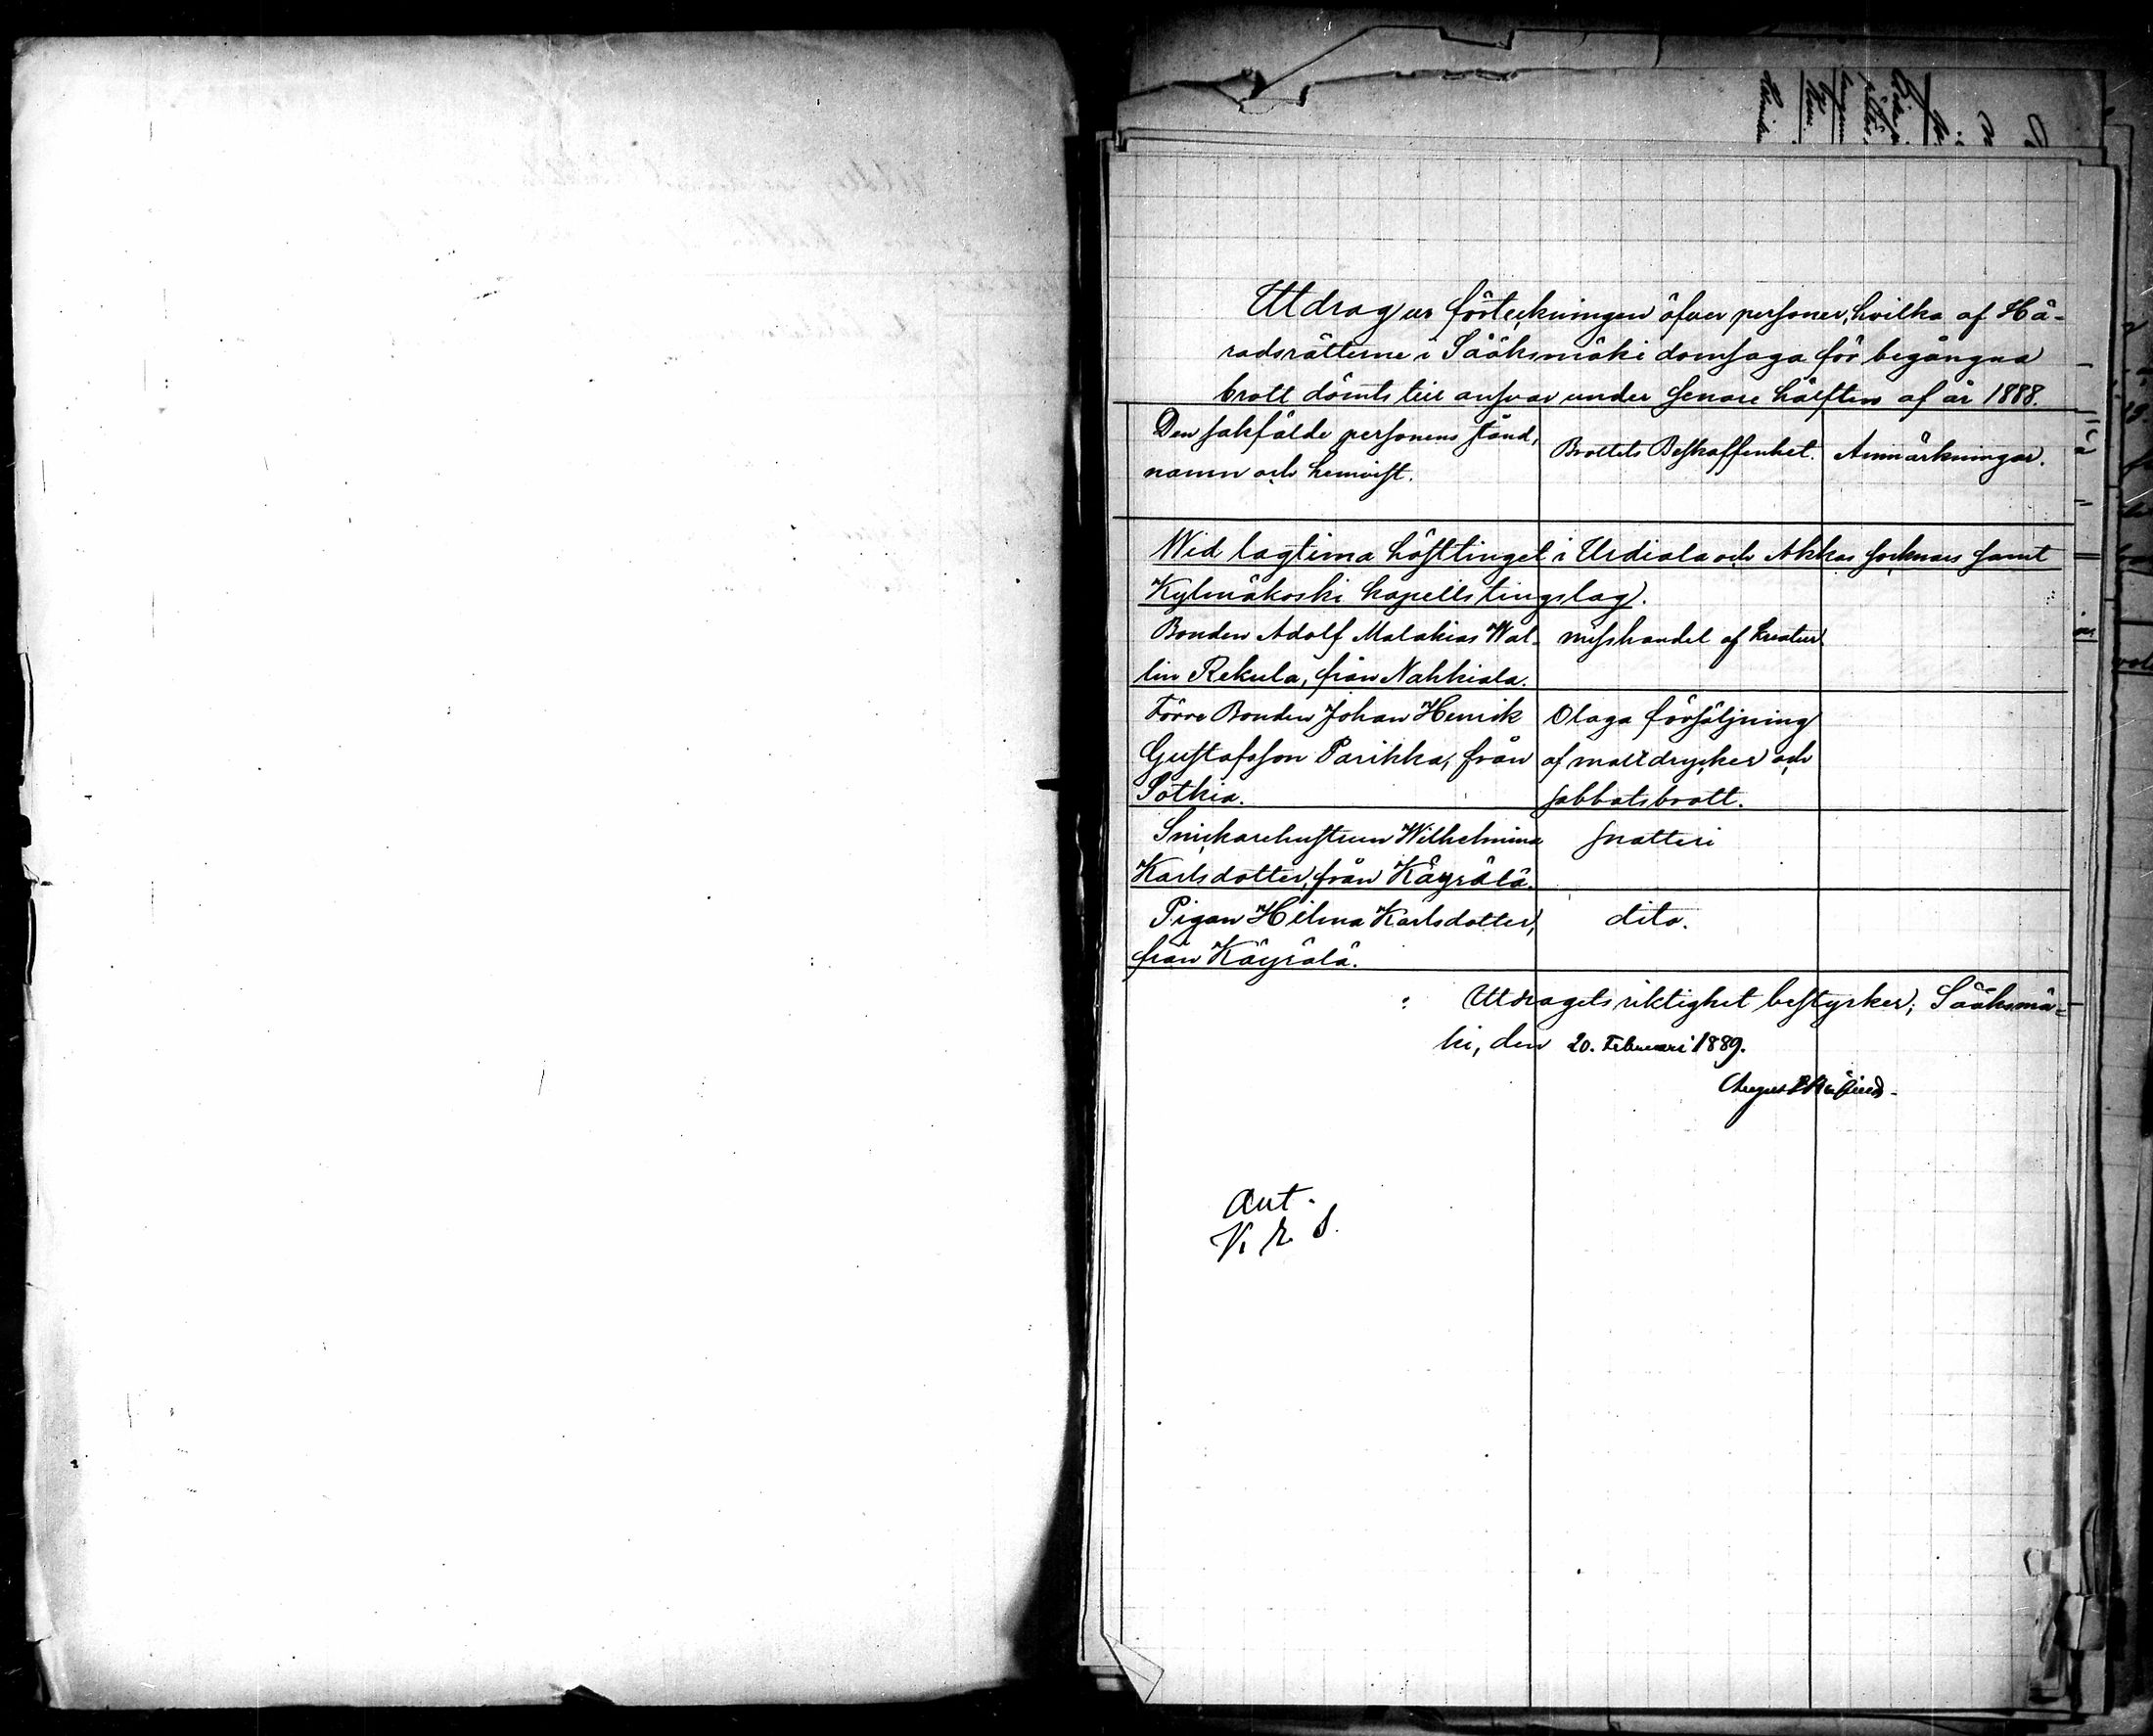 Utdrag ur förteckningen öfver personer, hvilka af Hä-
radsrätterne i Sääksmäki domsaga för begångna
brott dömts till ansvar under senare hälften af år 1888.
Den sakfälde personens stånd,
namn och hemvist.
Brottets Beskaffenhet.
Anmärkningar.
Wid lagtima hösttinget i Urdiala och Akkas socknars samt
Kylmäkoski kapells tingslag.
Bonden Adolf Malakias Wal-
lin Rekula, från Nahkiala.
misshandel af kreatur.
Förre Bonden Johan Henrik
Gustafsson Parikka, från
Sotkia.
Olaga försäljning
af maltdrycker och
sabbatsbrott.
Snickarehustrun Wilhelmina
Karlsdotter, från Käyrälä.
snatteri
Pigan Hilma Karlsdotter,
från Käyrälä.
dito.
Utdragets riktighet bestyrker; Sääksmä-
ki, den 20. Februari 1889.
August
Ant.